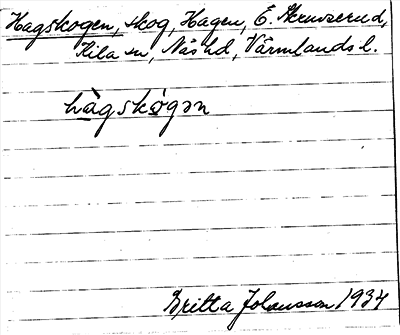 Hagskogen, skog, Hagen, E. Skruvserud,
Kila sn, Näs hd, Värmlands l.
hàgskógən
Britta Johansson 1934